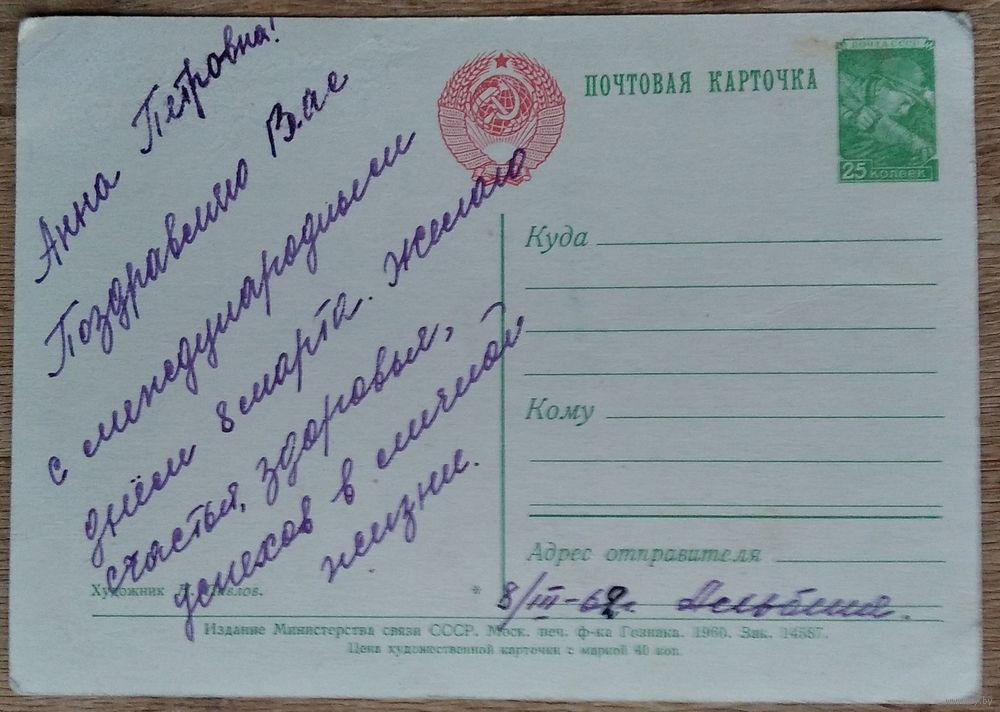 Анна Петровна!
Поздравляю Вас
с международным
днём 8 марта. Желаю
счастья, здоровья,
успехов в личной
жизни.
ПОЧТОВАЯ КАРТОЧКА
ПОЧТА СССР
25 КОПЕЕК
Куда
Кому
Адрес отправителя
8/III-62г.
Художник
*
Издание Министерства связи СССР. Моск. печ. ф-ка Гознака. 1960. Зак. 14587.
Цена художественной карточки с маркой 40 коп.